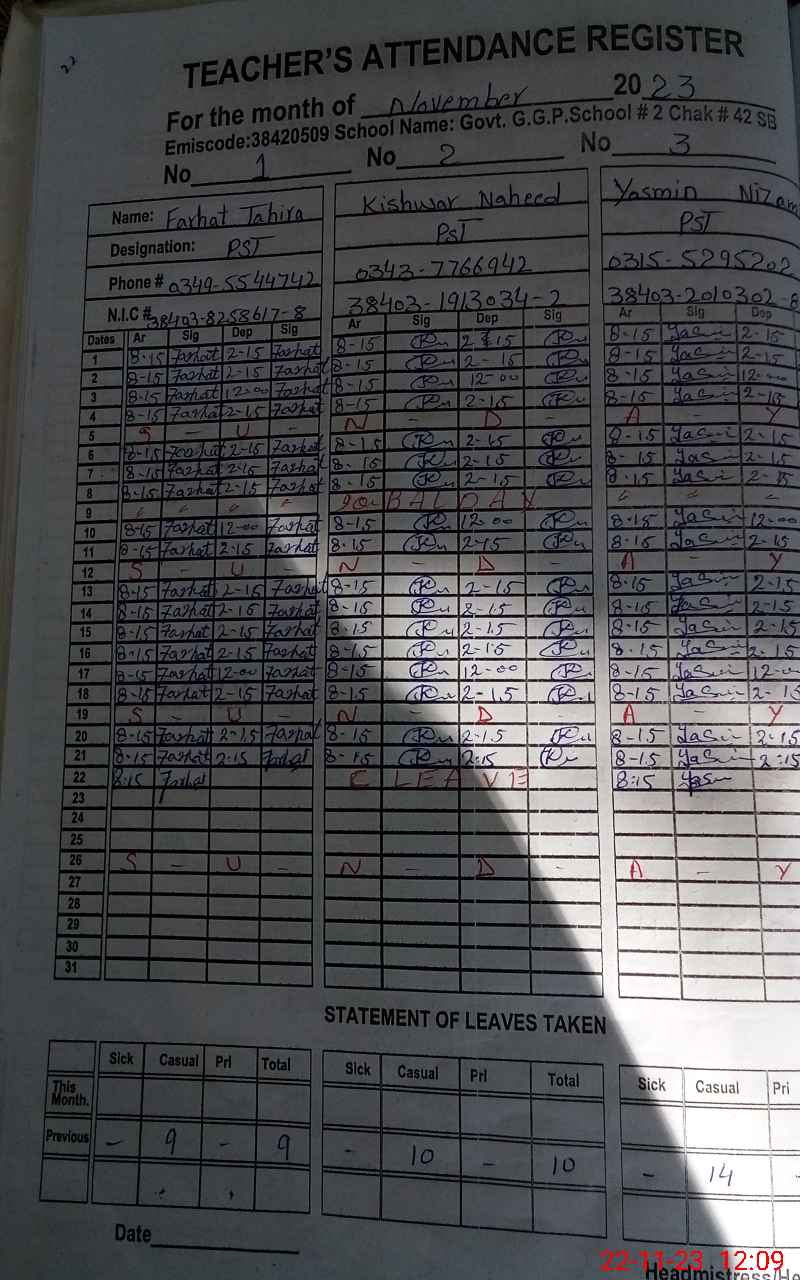 22
TEACHER'S ATTENDANCE REGISTER
For the month of November 2023
Emiscode:38420509 School Name: Govt. G.G.P.School # 2 Chak # 42 SB
No 1 No 2 No 3
Name: Farhat Tahira Kishwar Naheed Yasmin Nizam
Designation: PST PST PST
Phone # 0349-5544742 0343-7766942 0315-5295202
N.I.C # 38403-8258617-8 38403-1913034-2 38403-2010302-8
Dates Ar Sig Dep Sig Ar Sig Dep Sig Ar Sig Dep
1 8-15 Farhat 2-15 Farhat 8-15 2-15 8-15 Yasmin 2-15
2 8-15 Farhat 2-15 Farhat 8-15 2-15 8-15 Yasmin 2-15
3 8-15 Farhat 12-00 Farhat 8-15 12-00 8-15 Yasmin 12-00
4 8-15 Farhat 2-15 Farhat 8-15 2-15 8-15 Yasmin 2-15
5 S - U - N - D - A - Y
6 8-15 Farhat 2-15 Farhat 8-15 2-15 8-15 Yasmin 2-15
7 8-15 Farhat 2-15 Farhat 8-15 2-15 8-15 Yasmin 2-15
8 8-15 Farhat 2-15 Farhat 8-15 2-15 8-15 Yasmin 2-15
9 BAL DAY
10 8-15 Farhat 12-00 Farhat 8-15 12-00 8-15 Yasmin 12-00
11 8-15 Farhat 2-15 Farhat 8-15 2-15 8-15 Yasmin 2-15
12 S - U - N - D - A - Y
13 8-15 Farhat 2-15 Farhat 8-15 2-15 8-15 Yasmin 2-15
14 8-15 Farhat 2-15 Farhat 8-15 2-15 8-15 Yasmin 2-15
15 8-15 Farhat 2-15 Farhat 8-15 2-15 8-15 Yasmin 2-15
16 8-15 Farhat 2-15 Farhat 8-15 2-15 8-15 Yasmin 2-15
17 8-15 Farhat 12-00 Farhat 8-15 12-00 8-15 Yasmin 12-00
18 8-15 Farhat 2-15 Farhat 8-15 2-15 8-15 Yasmin 2-15
19 S - U - N - D - A - Y
20 8-15 Farhat 2-15 Farhat 8-15 2-15 8-15 Yasmin 2-15
21 8-15 Farhat 2:15 Farhat 8-15 2:15 8-15 Yasmin 2:15
22 8:15 Farhat C LEAVE 8:15 Yasmin
23
24
25
26 S - U - N - D - A - Y
27
28
29
30
31
STATEMENT OF LEAVES TAKEN
Sick Casual Prl Total Sick Casual Prl Total Sick Casual Pri
This Month.
Previous - 9 - 9 - 10 - 10 - 14 -
Date
22-11-23 12:09
Headmistress/He